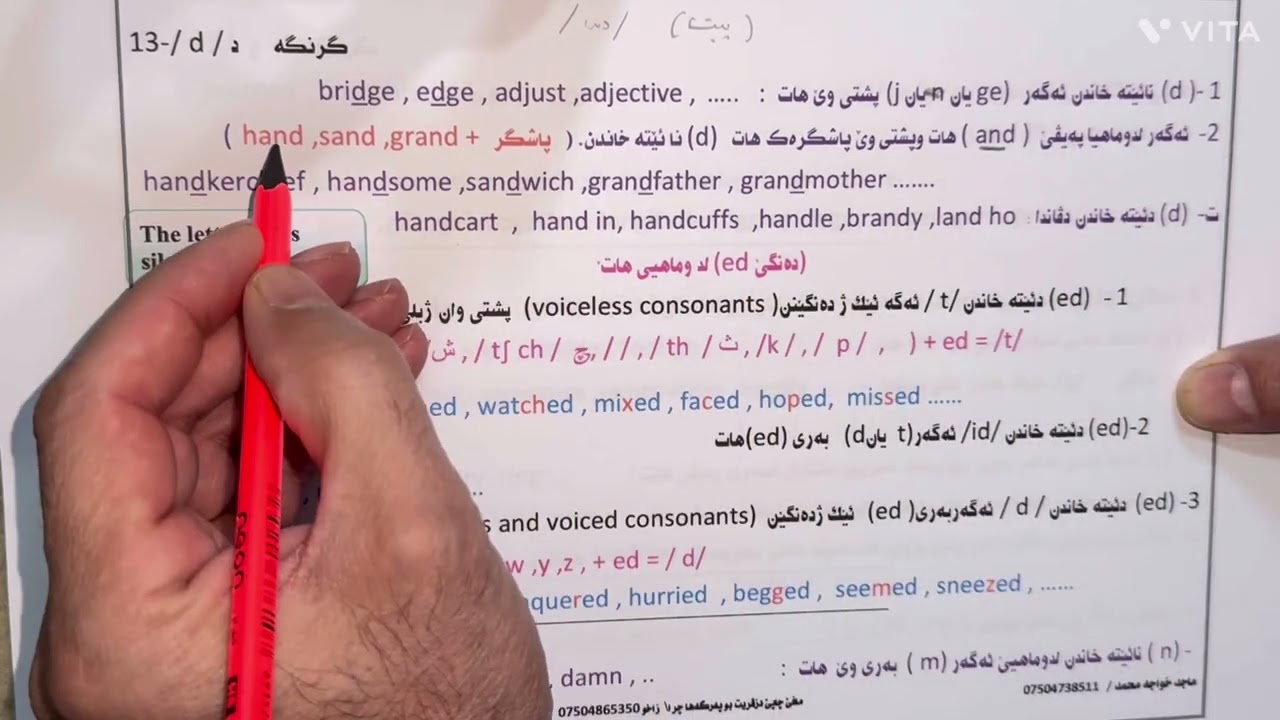 VITA
(پیت) / /
13-/ d / د گرنگه
1 -( d) نائێته خاندن ئهگهر (ge یان n یان j) پشتی وێ هات : bridge , edge , adjust ,adjective , .....
2- ئهگهر لدوماهیا پهیڤێ ( and ) هات وپشتی وێ پاشگرهک هات (d) نا ئێته خاندن. ( hand ,sand ,grand + پاشگر )
, handsome ,sandwich ,grandfather , grandmother .......
ت- (d) دئێته خاندن دڤاندا : handcart , hand in, handcuffs ,handle ,brandy ,land ho
The
(دهنگێ ed) لد وماهیی هات
1 - (ed) دئێته خاندن /t / ئهگه ئێك ژ دهنگێنن( voiceless consonants) پشتی وان
ش/ , / tʃ ch / چ, / / , / th / ث , /k / , / p / , ) + ed = /t/
ed , watched , mixed , faced , hoped, missed ......
2-(ed) دئێته خاندن /id/ ئهگهر(t یانd) بهری (ed)هات
..
3- (ed) دئێته خاندن / d / ئهگهربهری( ed) ئێك ژدهنگێن (s and voiced consonants
w ,y ,z , + ed = / d/
quered , hurried , begged , seemed , sneezed , ......
- ( n ) نائێته خاندن لدوماهیێ ئهگهر ( m ) بهری وێ هات : , damn , ..
ماجد خواجه محمد / 07504738511
07504865350